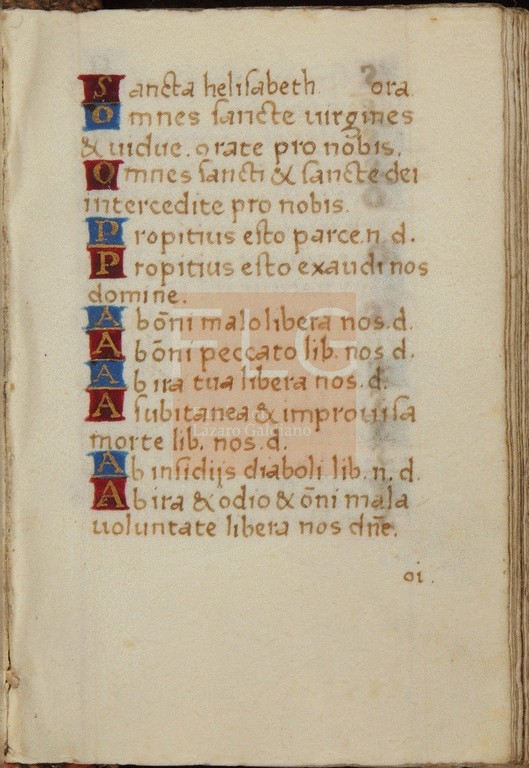 Sancta helisabeth. ora.
Omnes sancte uirgines
& uidue. orate pro nobis.
Omnes sancti & sancte dei
intercedite pro nobis.
Propitius esto parce. n. d.
Propitius esto exaudi nos
domine.
A bōni malo libera nos. d.
A bōni peccato lib. nos d.
Ab ira tua libera nos. d.
A subitanea & improuisa
morte lib. nos. d.
Ab insidijs diaboli lib. n. d.
Ab ira & odio & ōni mala
uoluntate libera nos dn̄e.
oi.
FLG
Lázaro Galdiano